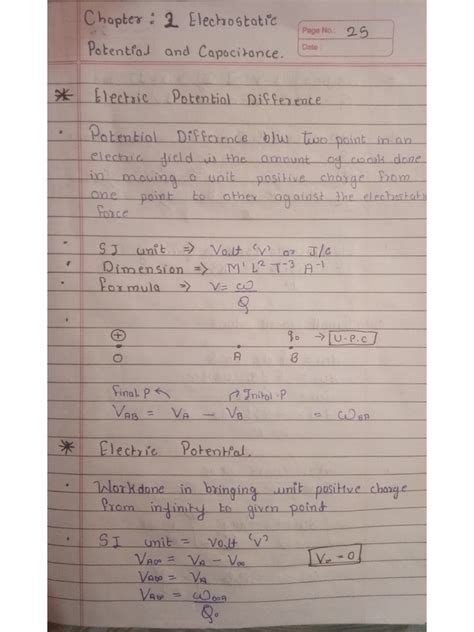 Chapter : 2 Electrostatic
Potential and Capacitance.
Page No.: 25
Date :
* Electric Potential Difference
• Potential Difference b/w two point in an
electric field is the amount of work done
in moving a unit positive charge from
one point to other against the electrostatic
force
• SI unit => Volt 'V' or J/C
• Dimension => M¹ L² T⁻³ A⁻¹
• Formula => V = ω/Q
+ q₀ → U.P.C
O A B
Final.P Inital.P
V_AB = V_A - V_B = ω_BA
* Electric Potential.
• Workdone in bringing unit positive charge
from infinity to given point
• SI unit = Volt 'V'
V_A∞ = V_A - V_∞ V_∞ = 0
V_A∞ = V_A
V_A∞ = ω_∞A/Q₀